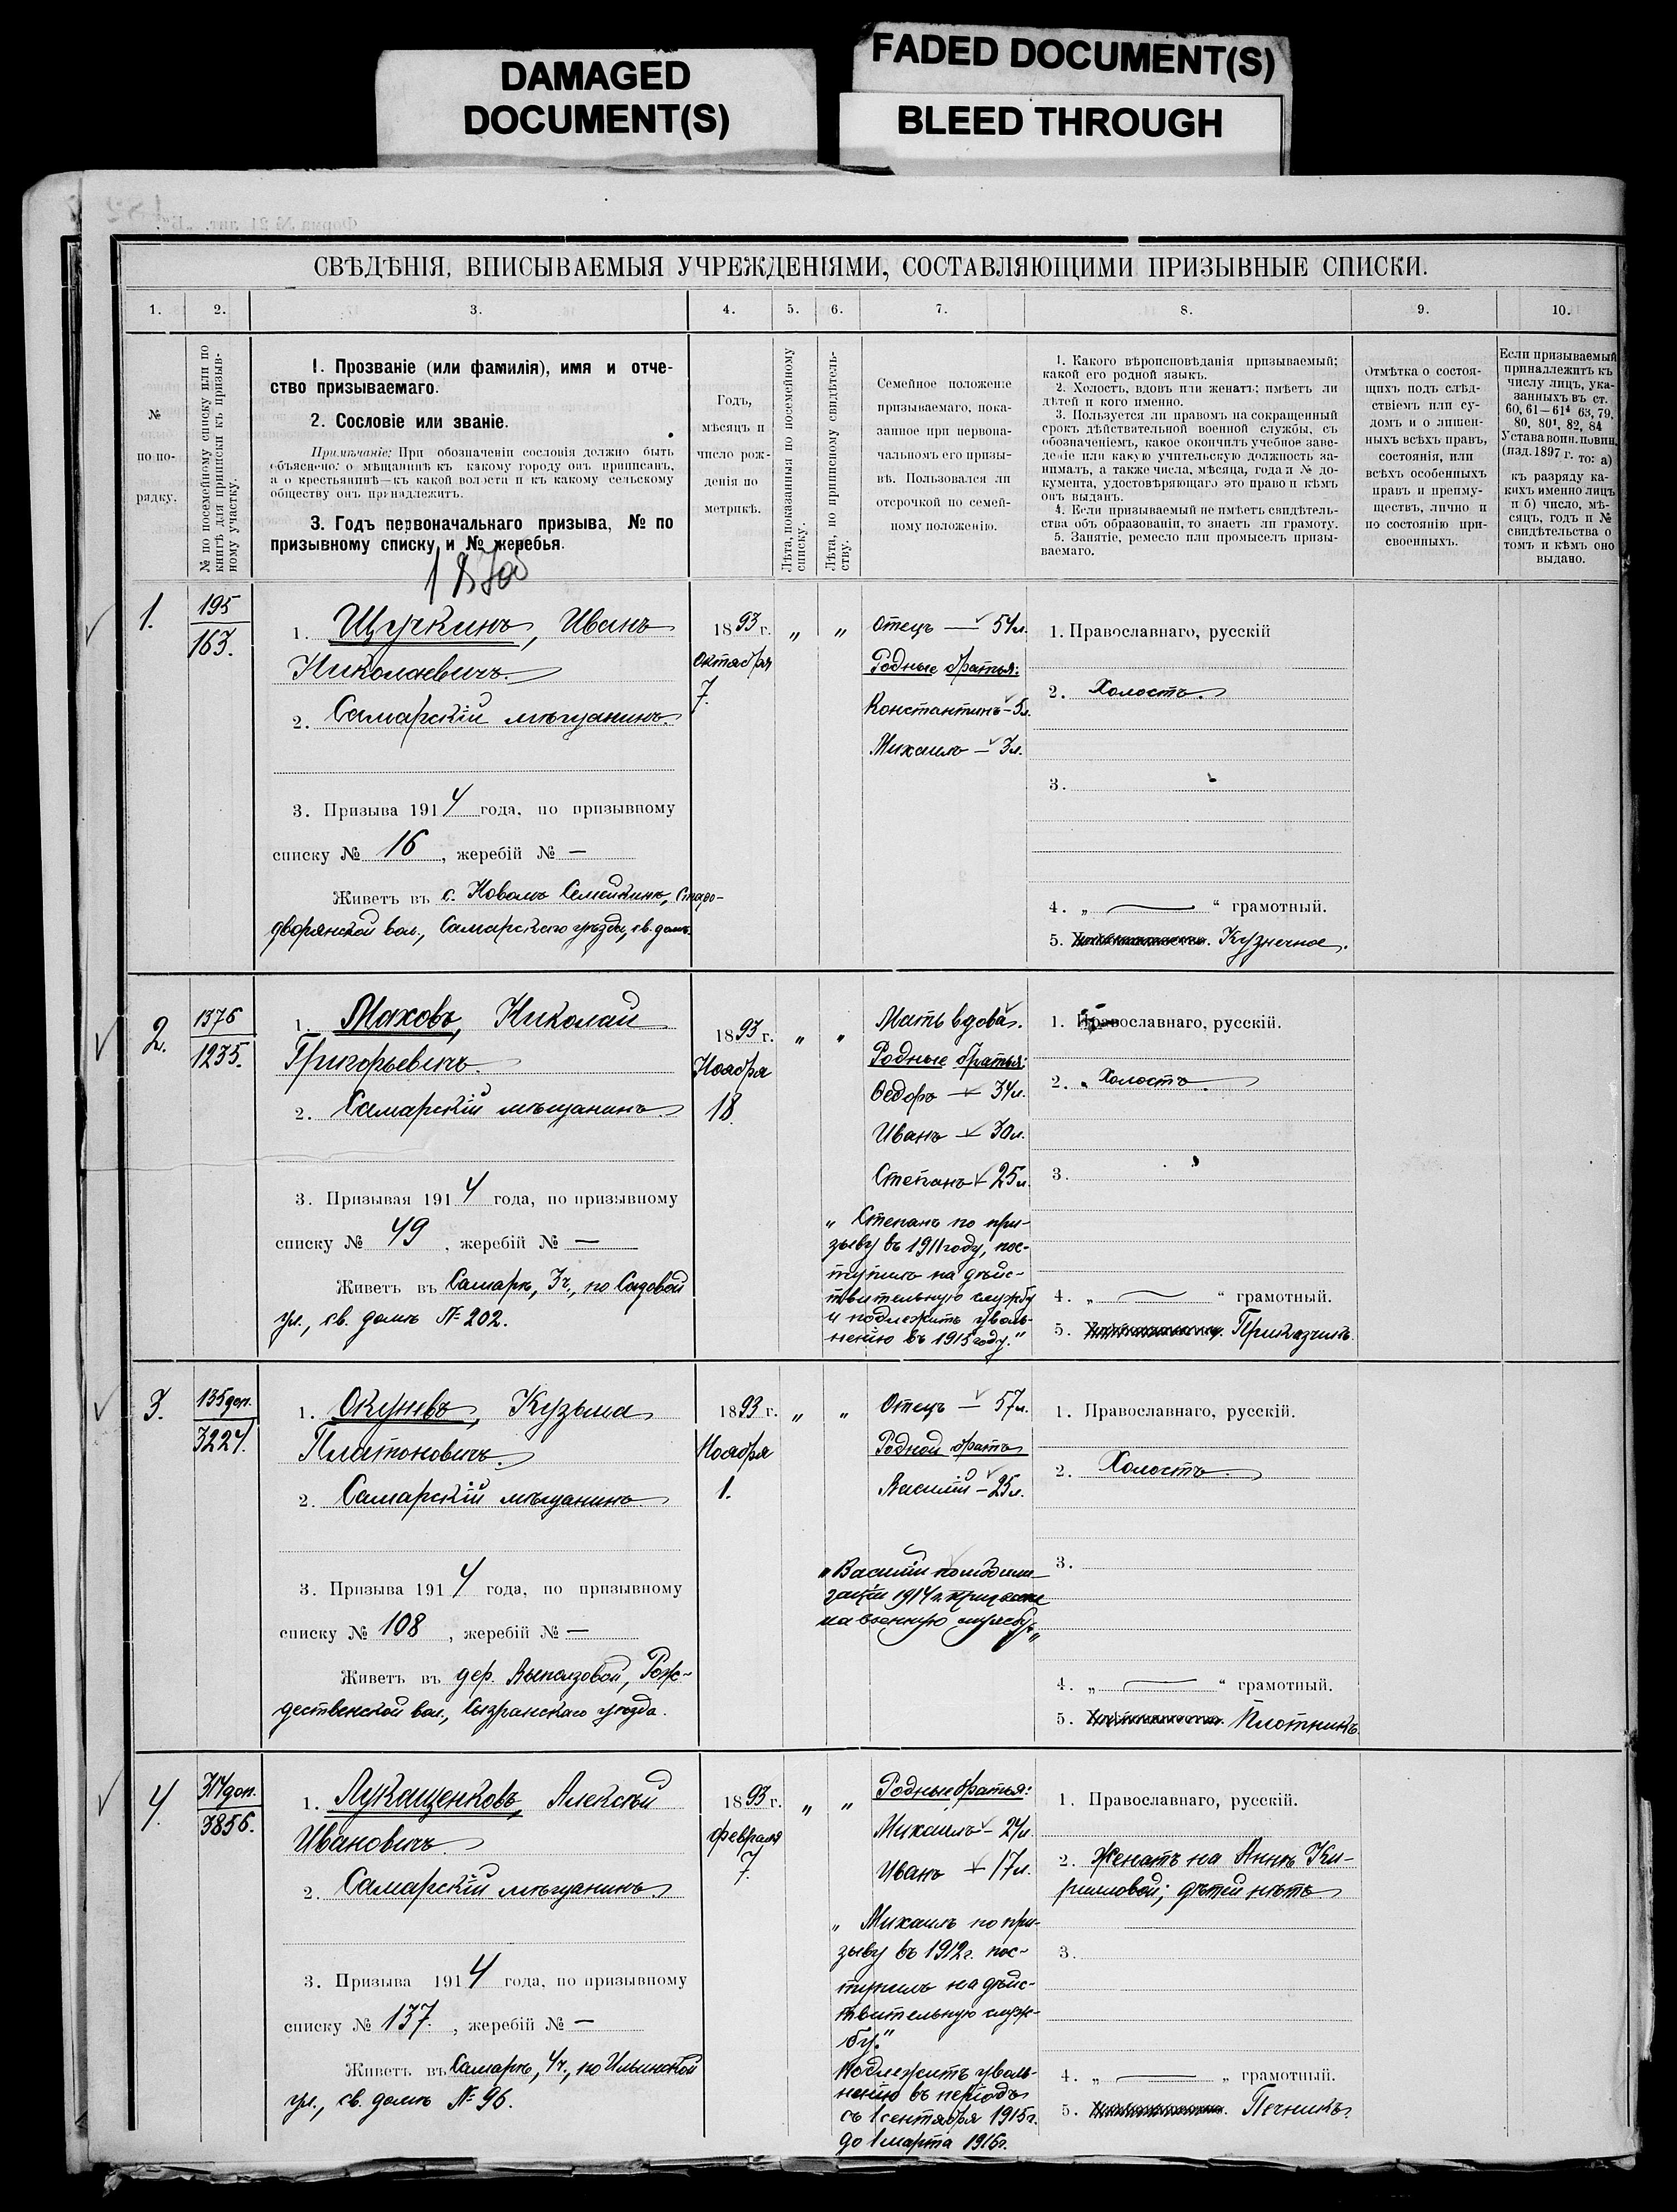 DAMAGED
DOCUMENT(S)
FADED DOCUMENT(S)
BLEED THROUGH
СВѢДѢНІЯ, ВПИСЫВАЕМЫЯ УЧРЕЖДЕНІЯМИ, СОСТАВЛЯЮЩИМИ ПРИЗЫВНЫЕ СПИСКИ.
1. 2. 3. 4. 5. 6. 7. 8. 9. 10.
№
по по-
рядку.
№ по посемейному списку или по
книгѣ для приписки къ призыв-
ному участку.
1. Прозваніе (или фамилія), имя и отче-
ство призываемаго.
2. Сословіе или званіе.
Примѣчаніе: При обозначеніи сословія должно быть
объяснено: о мѣщанинѣ къ какому городу онъ приписанъ,
а о крестьянинѣ—къ какой волости и къ какому сельскому
обществу онъ принадлежитъ.
3. Годъ первоначальнаго призыва, № по
призывному списку и № жеребья.
Годъ,
мѣсяцъ и
число рож-
денія по
метрикѣ.
Лѣта, показанныя по посемейному
списку.
Лѣта, по приписному свидѣтель-
ству.
Семейное положеніе
призываемаго, пока-
занное при первона-
чальномъ его призы-
вѣ. Пользовался ли
отсрочкой по семей-
ному положенію.
1. Какого вѣроисповѣданія призываемый;
какой его родной языкъ.
2. Холостъ, вдовъ или женатъ; имѣетъ ли
дѣтей и кого именно.
3. Пользуется ли правомъ на сокращенный
срокъ дѣйствительной военной службы, съ
обозначеніемъ, какое окончилъ учебное заве-
деніе или какую учительскую должность за-
нималъ, а также числа, мѣсяца, года и № до-
кумента, удостовѣряющаго это право и кѣмъ
онъ выданъ.
4. Если призываемый не имѣетъ свидѣтель-
ства объ образованіи, то знаетъ ли грамоту.
5. Занятіе, ремесло или промыселъ призы-
ваемаго.
Отмѣтка о состоя-
щихъ подъ слѣд-
ствіемъ или су-
домъ и о лишен-
ныхъ всѣхъ правъ,
состоянія, или
всѣхъ особенныхъ
правъ и преиму-
ществъ, лично и
по состоянію при-
своенныхъ.
Если призываемый
принадлежитъ къ
числу лицъ, ука-
занныхъ въ ст.
60, 61—61⁴ 63, 79,
80, 80¹, 82, 84
Устава воин. повин.
(изд. 1897 г. то: а)
къ разряду ка-
кихъ именно лицъ
и б) число, мѣ-
сяцъ, годъ и №
свидѣтельства о
томъ и кѣмъ оно
выдано.
1.
195
163.
1. Щучкинъ, Иванъ
Николаевичъ.
2. Самарскій мѣщанинъ.
3. Призыва 1914 года, по призывному
списку № 16, жеребій № —
Живетъ въ с. Новомъ Семейкинѣ, Старо-
дворянской вол., Самарскаго уѣзда, св. домъ.
1893 г.
Октября
7.
„ „
Отецъ — 54 л.
Родные братья:
Константинъ — 5 л.
Михаилъ — 3 л.
1. Православнаго, русскій
2. Холостъ.
3.
4. „ — “ грамотный.
5. Кузнечное.
2.
1376
1235.
1. Маховъ, Николай
Григорьевичъ.
2. Самарскій мѣщанинъ.
3. Призывая 1914 года, по призывному
списку № 49, жеребій № —
Живетъ въ Самарѣ, 3 ч., по Садовой
ул., св. домъ № 202.
1893 г.
Ноября
18.
„ „
Мать вдова.
Родные братья:
Ѳедоръ — 34 л.
Иванъ — 30 л.
Степанъ — 25 л.
„ Степанъ по при-
зыву въ 1911 году, пос-
тупилъ на дѣйс-
твительную службу
и подлежитъ уволь-
ненію въ 1915 году.“
1. Православнаго, русскій.
2. Холостъ.
3.
4. „ — “ грамотный.
5. Приказчикъ.
3.
135 доп.
3227.
1. Окуневъ, Кузьма
Платоновичъ.
2. Самарскій мѣщанинъ
3. Призыва 1914 года, по призывному
списку № 108, жеребій № —
Живетъ въ дер. Выползовой, Рож-
дественской вол., Сызранскаго уѣзда.
1893 г.
Ноября
1.
„ „
Отецъ — 57 л.
Родной братъ
Василій — 25 л.
„ Василій по мобили-
заціи 1914 г. призванъ
на военную службу „
1. Православнаго, русскій.
2. Холостъ.
3.
4. „ — “ грамотный.
5. Плотникъ.
4.
317 доп.
3856.
1. Лукащенковъ, Алексѣй
Ивановичъ.
2. Самарскій мѣщанинъ.
3. Призыва 1914 года, по призывному
списку № 137., жеребій № —
Живетъ въ Самарѣ, 4 ч., по Ильинской
ул., св. домъ № 96.
1893 г.
Февраля
7.
„ „
Родные братья:
Михаилъ — 24 л.
Иванъ — 17 л.
„ Михаилъ по при-
зыву въ 1912 г. пос-
тупилъ на дѣйс-
твительную служ-
бу.“
Подлежитъ уволь-
ненію въ періодъ
съ 1 сентября 1915 г.
до 1 марта 1916 г.
1. Православнаго, русскій.
2. Женатъ на Аннѣ Ки-
рилловой; дѣтей нѣтъ
3.
4. „ — „ грамотный.
5. Печникъ.